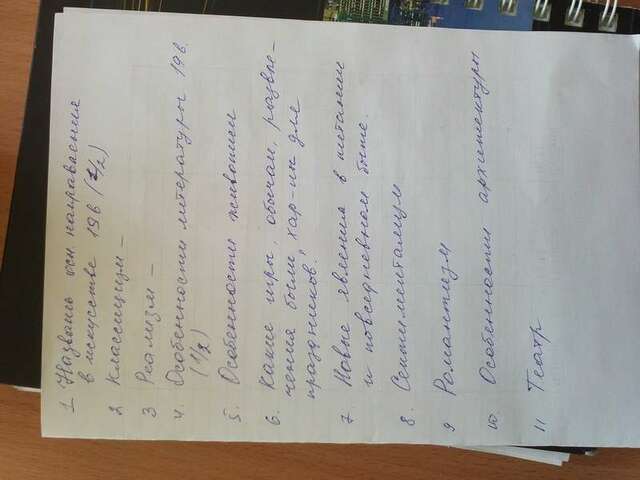 1 Назвать осн. направления
в искусстве 19в (1/2)
2 Классицизм –
3 Реализм –
4. Особенности литературы 19в.
(1/2)
5. Особенности живописи
6. Какие игры, обычаи, развле-
чения были хар-ны для
праздников.
7. Новые явления в питании
и повседневном быте.
8. Сентиментализм
9 Романтизм
10. Особенности архитектуры
11 Театр